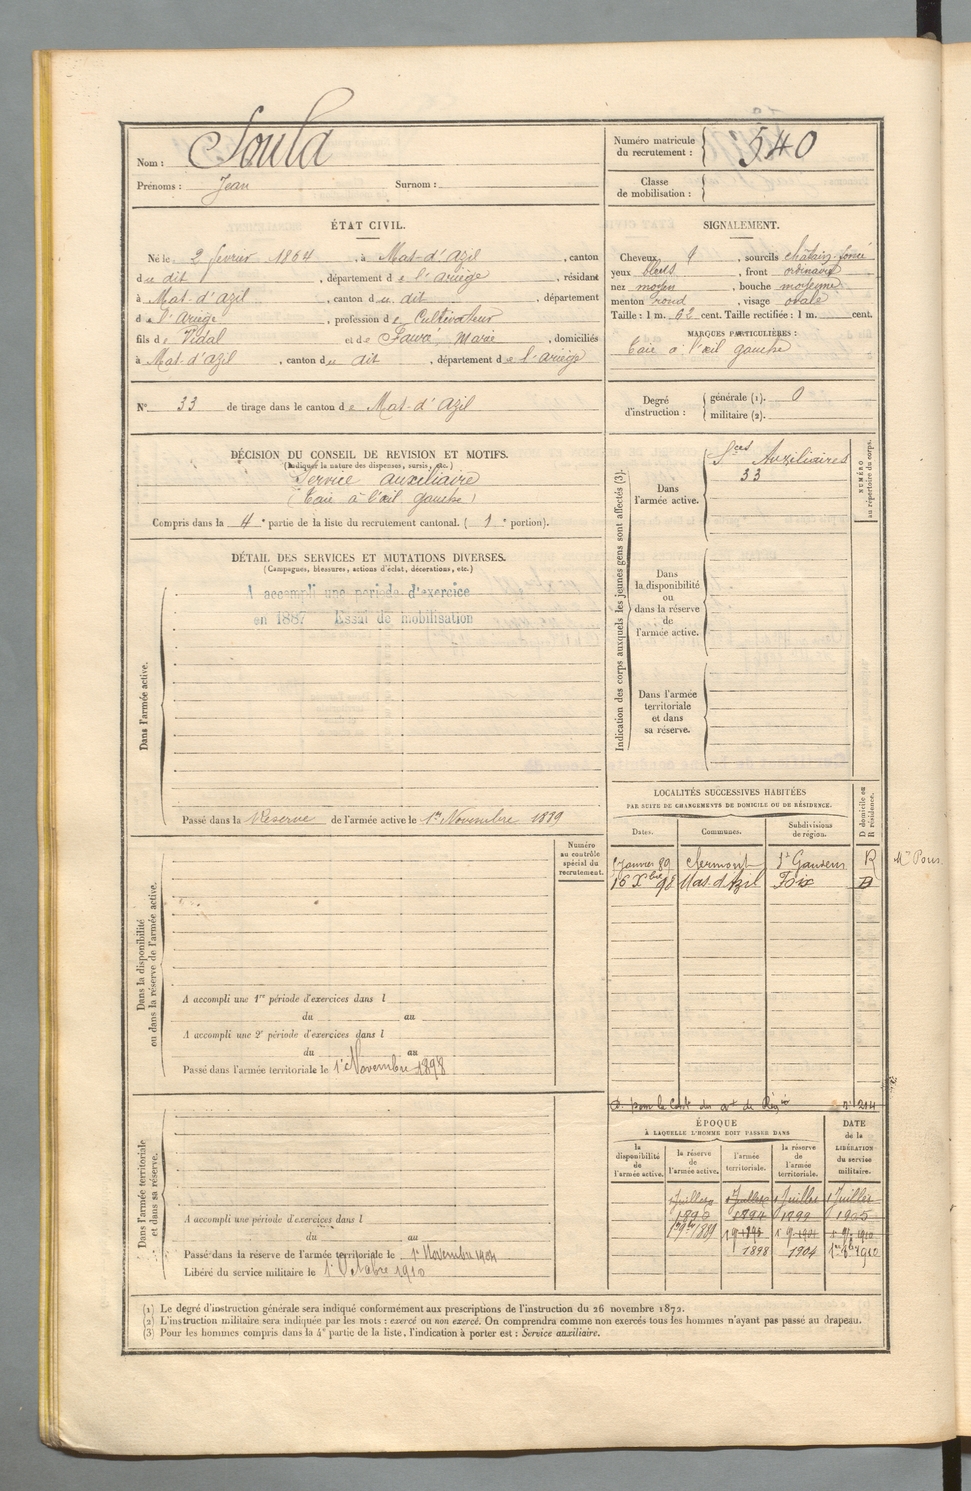 Nom : Soula
Prénoms : Jean Surnom :
Numéro matricule du recrutement : 540
Classe de mobilisation :
ÉTAT CIVIL.
Né le 2 février 1864, à Mas-d'Azil, canton
du dit, département de l'ariège, résidant
à Mas-d'Azil, canton du dit, département
de l'ariège, profession de Cultivateur
fils de Vidal et de Fawa, Marie, domiciliés
à Mas d'azil, canton du dit, département de l'ariège
SIGNALEMENT.
Cheveux, sourcils châtain foncé
yeux bleus, front ordinaire
nez moyen, bouche moyenne
menton rond, visage ovale
Taille : 1 m. 62 cent. Taille rectifiée : 1 m. cent.
MARQUES PARTICULIÈRES :
Taie à l'œil gauche
N° 33 de tirage dans le canton de Mas-d'Azil
Degré d'instruction : générale (1). 0
militaire (2).
DÉCISION DU CONSEIL DE REVISION ET MOTIFS.
(Indiquer la nature des dispenses, sursis, etc.)
Service auxiliaire
(Taie à l'œil gauche)
Compris dans la 4e partie de la liste du recrutement cantonal. (1e portion).
DÉTAIL DES SERVICES ET MUTATIONS DIVERSES.
(Campagnes, blessures, actions d'éclat, décorations, etc.)
Dans l'armée active.
A accompli une période d'exercice
en 1887 Essai de mobilisation
Passé dans la Réserve de l'armée active le 1er Novembre 1889
Indication des corps auxquels les jeunes gens sont affectés (3).
Dans l'armée active.
Sces Auxiliaires
33
NUMÉRO au répertoire du corps.
Dans la disponibilité ou dans la réserve de l'armée active.
Dans l'armée territoriale et dans sa réserve.
LOCALITÉS SUCCESSIVES HABITÉES
PAR SUITE DE CHANGEMENTS DE DOMICILE OU DE RÉSIDENCE.
Dates. Communes. Subdivisions de région. D domicile ou R résidence.
Janvier 89 Clermont St Gaudens R
16 Xbre 98 Mas d'Azil Foix D
Dans la disponibilité ou dans la réserve de l'armée active.
Numéro au contrôle spécial du recrutement.
A accompli une 1re période d'exercices dans l
du au
A accompli une 2e période d'exercices dans l
du au
Passé dans l'armée territoriale le 1er Novembre 1898
Dans l'armée territoriale et dans sa réserve.
A accompli une période d'exercices dans l
du au
Passé dans la réserve de l'armée territoriale le 1er Novembre 1904
Libéré du service militaire le 1er Octobre 1910
ÉPOQUE
À LAQUELLE L'HOMME DOIT PASSER DANS
la disponibilité de l'armée active. la réserve de l'armée active. l'armée territoriale. la réserve de l'armée territoriale. DATE de la LIBÉRATION du service militaire.
Juillet 1 Juillet 1 Juillet 1 Juillet
1890 1894 1899 1905
1er 9bre 1889
1898 1904 1910
(1) Le degré d'instruction générale sera indiqué conformément aux prescriptions de l'instruction du 26 novembre 1872.
(2) L'instruction militaire sera indiquée par les mots : exercé ou non exercé. On comprendra comme non exercés tous les hommes n'ayant pas passé au drapeau.
(3) Pour les hommes compris dans la 4e partie de la liste, l'indication à porter est : Service auxiliaire.